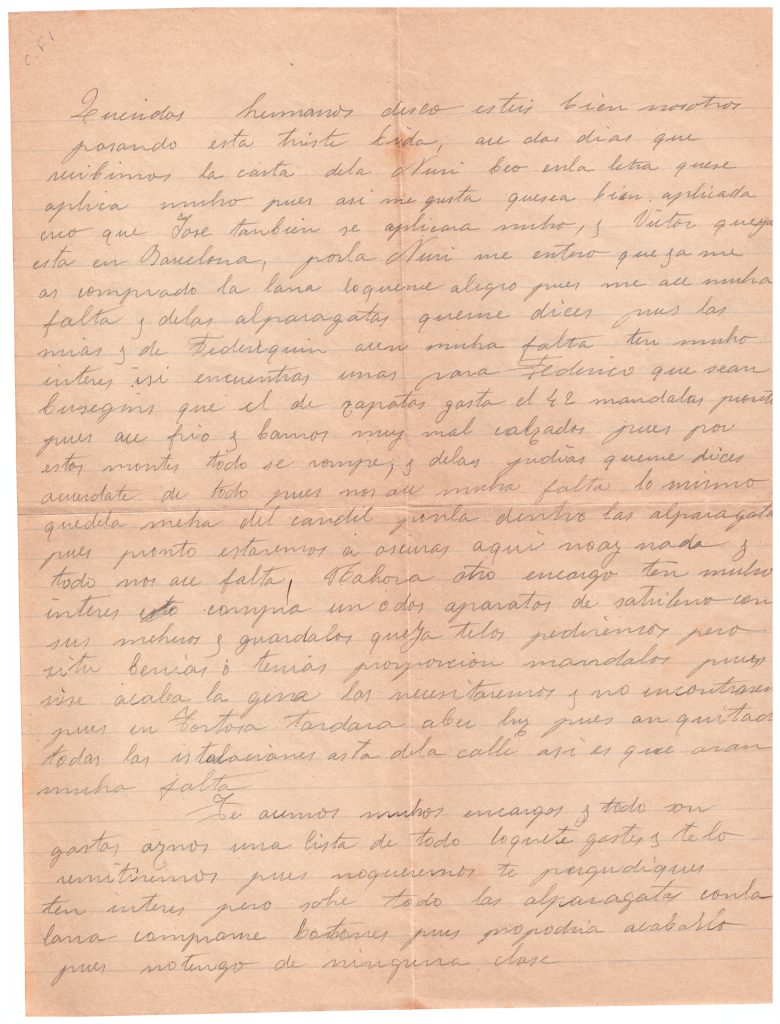 C.F.1
Queridos hermanos deseo esteis bien nosotros
pasando esta triste bida, ace dos dias que
recibimos la carta dela Nuri beo enla letra quese
aplica mucho pues asi me gusta quesea bien aplicada
creo que Jose tanbien se aplicara mucho, y Victor queya
esta en Barcelona, porla Nuri me entero que ya me
as comprado la lana loqueme alegro pues me ace mucha
falta y delas alparagatas queme dices pues las
mias y de Federiquin acen mucha falta ten mucho
interes isi encuentras unas para Federico que sean
que el de zapatos gasta el 42 mandalas pronto
pues ace frio y bamos muy mal calzados pues por
estos montes todo se rompe, y delas judias queme dices
acuerdate de todo pues nos ace mucha falta lo mismo
quedela mecha del candil ponla dentro las alparagata
pues pronto estaremos á oscuras aqui noay nada y
todo nos ace falta, Yahora otro encargo ten mucho
interes esto compra un odos aparatos de
sus mecheros y guardalos queya telos pediremos pero
situ benias ó tenias proporcion mandalos pues
sise acaba la gera los necesitaremos y no encontrarem
pues en Tortosa tardara aber luz pues an quitado
todas las istalaciones asta dela calle asi es que aran
mucha falta
Te acemos muchos encargos y todo son
gastos aznos una lista de todo loquete gastes y telo
remitiremos pues noqueremos te pergudiques
ten interes pero sobre todo las alparagatas conla
lana comprame botones pues nopodria acabarlo
pues notengo de ninguna clase